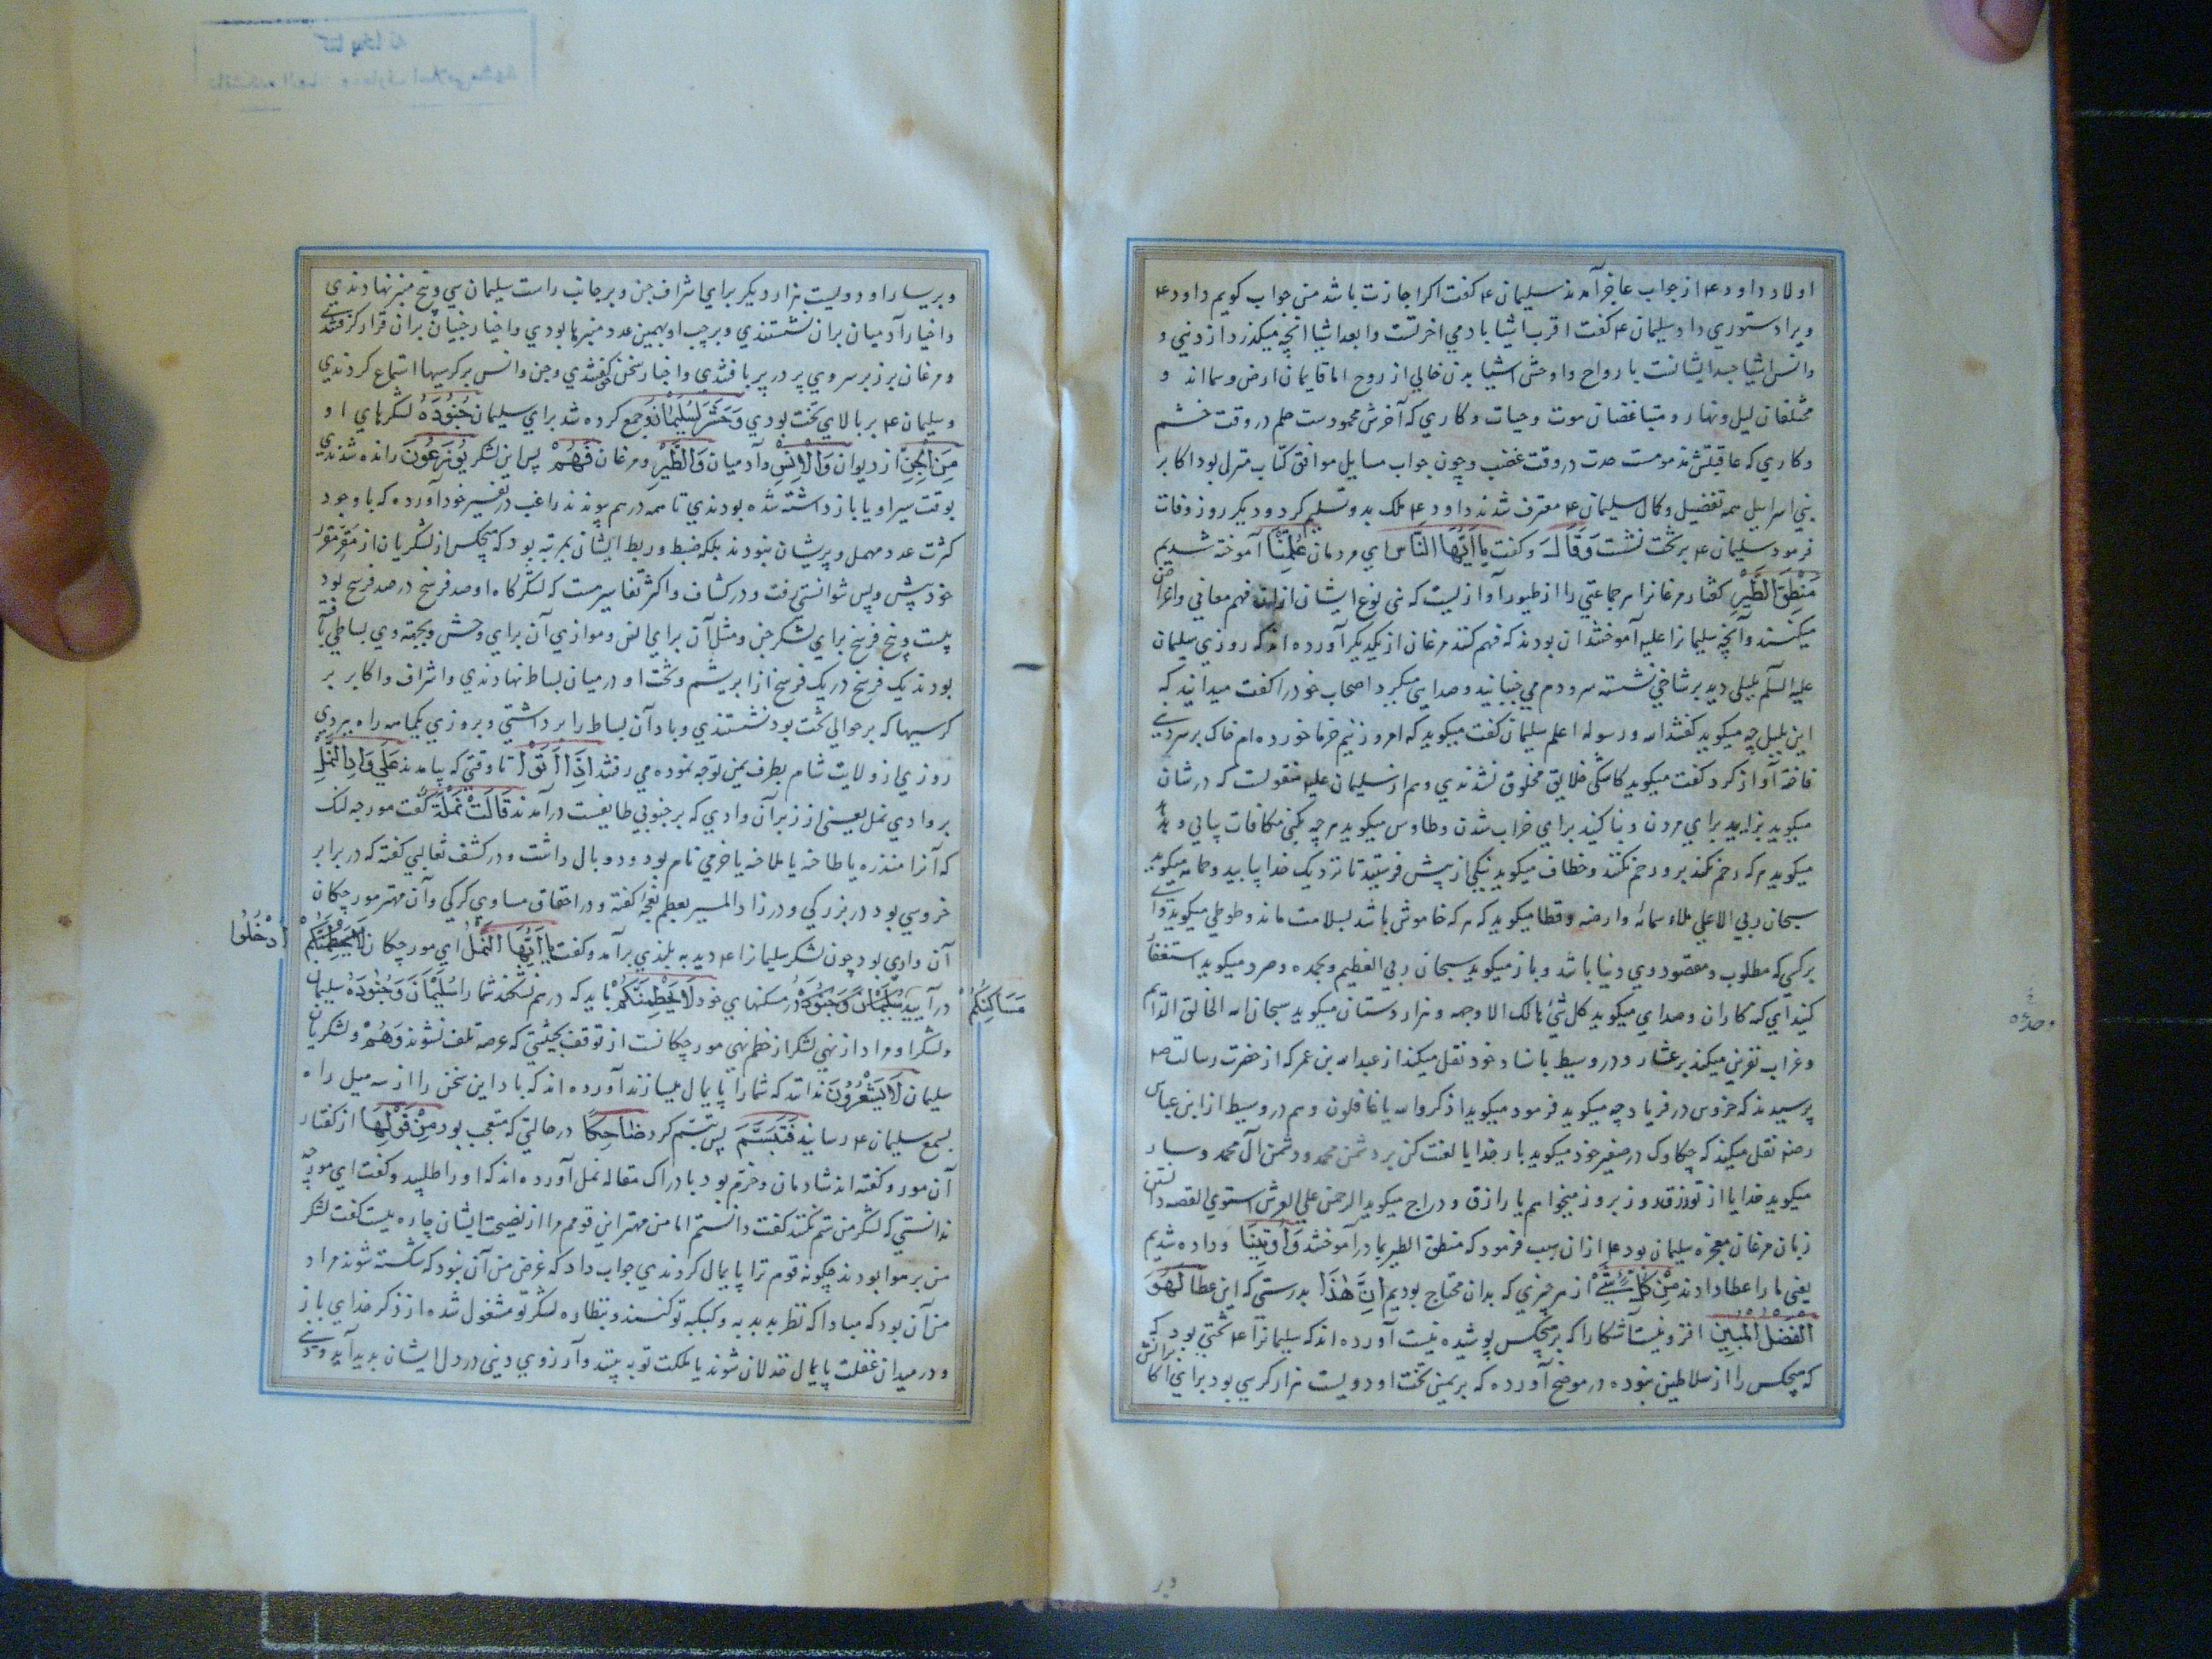 اولاد داود ع از جواب عاجز آمدند سلیمان ع کفت اکر اجازت باشد من جواب کویم داود ع
ویرا دستوری داد سلیمان ع کفت اقرب اشیا بادمی اخرتست وابعد اشیا انچه میکذرد از دنیی و
وانس اشیا جسد ایشانست با رواح واوحش اشیا بدن خالی از روح اما قایمان ارض وسمااند و
مختلفان لیل ونهار ومتباغضان موت وحیات وکاری که آخرش محمودست حلم در وقت خشم
وکاری که عاقبتش مذمومست حدت در وقت غضب وچون جواب مسایل موافق کتاب منزل بود اکابر
بنی اسراییل همه بتفضیل وکمال سلیمان ع معترف شدند داود ع ملک بدو تسلیم کرد ودیکر روز وفات
فرمود سلیمان ع برتخت نشست وَقَالَ وکفت یَا اَیُّهَا النَّاسُ ای مردمان عُلِّمْنَا آموخته شدیم
مَنْطِقَ الطَّیْرِ کفتار مرغانرا هر جماعتی را از طیور آوازیست که بنی نوع ایشان ازان فهم معانی واغراض
میکنند وآنچه سلیمانرا علیه آموختند ان بودند که فهم کنند مرغان از یکدیکر آورده اند که روزی سلیمان
علیه السلم بلبلی دید بر شاخی نشسته سر ودم می جنبانید وصدایی میکرد اصحاب خود را کفت میدانید که
این بلبل چه میکوید کفتند الله ورسوله اعلم سلیمان کفت میکوید که امروز نیم خرما خورده ام خاک بر سر دنیی
فاخته آواز کرد کفت میکوید کاشکی خلایق مخلوق نشدندی وهم از سلیمان علیه منقولست که ورشان
میکوید بزایید برای مردن وبنا کنید برای خراب شدن وطاوس میکوید هرچه بکنی مکافات یابی وهدهد
میکوید هر که رحم نکند برو رحم نکنند وخطاف میکوید نیکی از پیش فرستید تا نزدیک خدا یابید وحمامه میکوید
سبحان ربی الاعلی ملاء سمائه وارضه وقطا میکوید که هر که خاموش باشد بسلامت ماند وطوطی میکوید وای
بر کسی که مطلوب ومقصود وی دنیا باشد وباز میکوید سبحان ربی العظیم وبحمده وصرد میکوید استغفار
کنید ای کنه کاران وحدای میکوید کل شئ هالک الا وجهه وهزار دستان میکوید سبحان الله الخالق الدایم
وغراب نفرین میکند بر عشار ودر وسیط باسناد خود نقل میکند از عبدالله بن عمر که از حضرت رسالت ص
پرسیدند که خروس در فریاد چه میکوید فرمود میکوید اذکروا الله یا غافلون وهم در وسیط از ابن عباس
رضه نقل میکند که چکاوک در صفیر خود میکوید بار خدایا لعنت کن بر دشمن محمد ودشمن آل محمد وسار
میکوید خدایا از تو رزق روز بروز میخواهم یا رازق ودراج میکوید الرحمن علی العرش استوی القصه دانستن
زبان مرغان معجزه سلیمان بود ع ازان سبب فرمود که منطق الطیر بما درآموختند وَاُوتِینَا وداده شدیم
یعنی ما را عطا دادند مِنْ کُلِّ شَیْءٍ از هر چیزی که بدان محتاج بودیم اِنَّ هٰذَا بدرستی که این عطا لَهُوَ
الْفَضْلُ الْمُبِینُ افزونیست آشکارا که برهیچکس پوشیده نیست آورده اند که سلیمانرا ع تختی بود که
که هیچکس را از سلاطین نبوده در موضح آورده که بر یمین تخت او دویست هزار کرسی بود برای اکابر انس
وبر یسار او دویست هزار دیکر برای اشراف جن وبر جانب راست سلیمان سی وپنج منبر نهادندی
واخیار آدمیان بران نشستندی وبر چپ او بهمین عدد منبرها بودی واخیار جنیان بران قرار کرفتندی
ومرغان بر زبر سر وی پر در پر بافتندی واحبار سخن کفتندی وجن وانس بر کرسیها استماع کردندی
وسلیمان ع بر بالای تخت بودی وَحُشِرَ لِسُلَیْمَانَ وجمع کرده شد برای سلیمان جُنُودُهُ لشکرهای او
مِنَ الْجِنِّ از دیوان وَالْاِنْسِ وآدمیان وَالطَّیْرِ ومرغان فَهُمْ پس این لشکر یُوزَعُونَ رانده شدندی
بوقت سیر او یا باز داشته شده بودندی تا همه درهم پیوندند راغب در تفسیر خود آورده که با وجود
کثرت عدد مهمل وپریشان نبودند بلکه ضبط وربط ایشان بمرتبه بود که هیچکس از لشکریان از مقر مقرر
خود پیش وپس نتوانستی رفت ودر کشاف واکثر تفاسیر هست که لشکرکاه او صد فرسخ در صد فرسخ بود
بیست وپنج فرسخ برای لشکر جن ومثل آن برای انس وموازی آن برای وحش وبجهته وی بساطی بافته
بودند یک فرسخ در یک فرسخ از ابریشم وتخت او در میان بساط نهادندی واشراف واکابر بر
کرسیها که بر حوالی تخت بود نشستندی وباد آن بساط را برداشتی وبروزی یکماهه راه ببردی
روزی از ولایت شام بطرف یمن توجه نموده می رفتند حَتّٰی اِذَا اَتَوْا تا وقتی که بیامدند عَلٰی وَادِ النَّمْلِ
بر وادی نمل یعنی از زبر آن وادی که بر جنوبی طایفست درآمدند قَالَتْ نَمْلَةٌ کفت مورچه لنک
که آنرا منذره یا طاخیه یا ملاخیه یا خرمی نام بود ودو بال داشت ودر کشف ثعالبی کفته که در برابر
خروسی بود در بزرکی ودر زاد المسیر بعظم نعجه کفته ودر احقاق مساوی کرکی وآن مهتر مورچکان
آن وادی بود چون لشکر سلیمانرا ع دید به بلندی برآمد وکفت یَا اَیُّهَا النَّمْلُ ای مورچکان ادْخُلُوا
درآیید مَسَاکِنَکُمْ در مسکنهای خود لَا یَحْطِمَنَّکُمْ باید که درهم نشکند شما را سُلَیْمَانُ وَجُنُودُهُ سلیمان
ولشکر او مراد از نهی لشکر از حطم نهی مورچکانست از توقف بحیثیتی که عرصه تلف نشوند وَهُمْ ولشکریان
سلیمان لَا یَشْعُرُونَ ندانند که شما را پایمال میسازند آورده اند که باد این سخن را از سه میل راه
بسمع سلیمان ع رسانید فَتَبَسَّمَ پس تبسم کرد ضَاحِکًا در حالتی که متعجب بود مِنْ قَوْلِهَا از کفتار
آن مور وکفته اند شادمان وخرم بود بادراک مقاله نمل آورده اند که او را طلبید وکفت ای مورچه
ندانستی که لشکر من ستم نکنند کفت دانستم اما من مهتر این قومم مرا از نصیحت ایشان چاره نیست کفت لشکر
من بر هوا بودند چکونه قوم ترا پایمال کردندی جواب داد که غرض من آن نبود که شکسته شوند مراد
من آن بود که مبادا که نظر بدبدبه وکبکبه تو کنند وبنظاره لشکر تو مشغول شده از ذکر خدای باز
ودر میدان غفلت پایمال خذلان شوند یا مملکت تو به بینند وآرزوی دنیی در دل ایشان پدید آید ودنیی